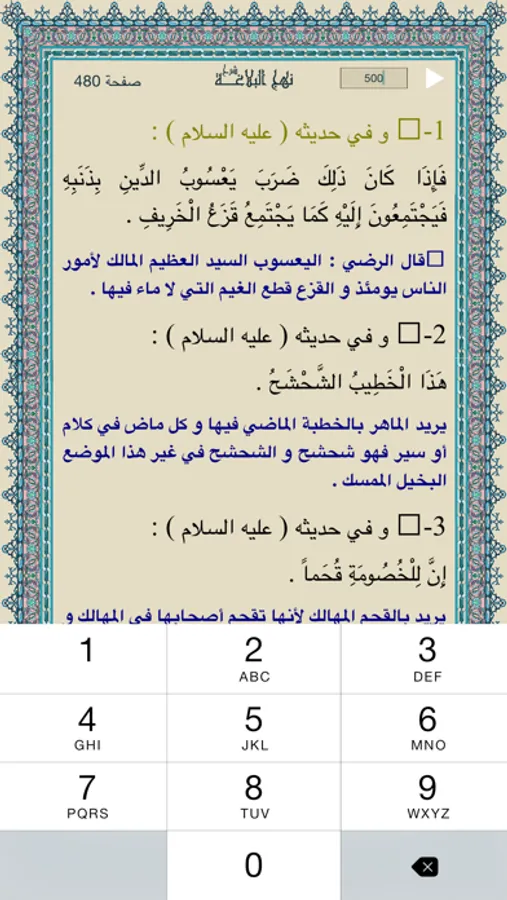 صفحة 480 شرح نهج البلاغة 500
1-□ و في حديثه ( عليه السلام ) :
فَإِذَا كَانَ ذَلِكَ ضَرَبَ يَعْسُوبُ الدِّينِ بِذَنَبِهِ
فَيَجْتَمِعُونَ إِلَيْهِ كَمَا يَجْتَمِعُ قَزَعُ الْخَرِيفِ .
□قال الرضي : اليعسوب السيد العظيم المالك لأمور
الناس يومئذ و القزع قطع الغيم التي لا ماء فيها .
2-□ و في حديثه ( عليه السلام ) :
هَذَا الْخَطِيبُ الشَّحْشَحُ .
يريد الماهر بالخطبة الماضي فيها و كل ماض في كلام
أو سير فهو شحشح و الشحشح في غير هذا الموضع
البخيل الممسك .
3-□ و في حديثه ( عليه السلام ) :
إِنَّ لِلْخُصُومَةِ قُحَماً .
يريد بالقحم المهالك لأنها تقحم أصحابها في المهالك و
1 2 3
ABC DEF
4 5 6
GHI JKL MNO
7 8 9
PQRS TUV WXYZ
0